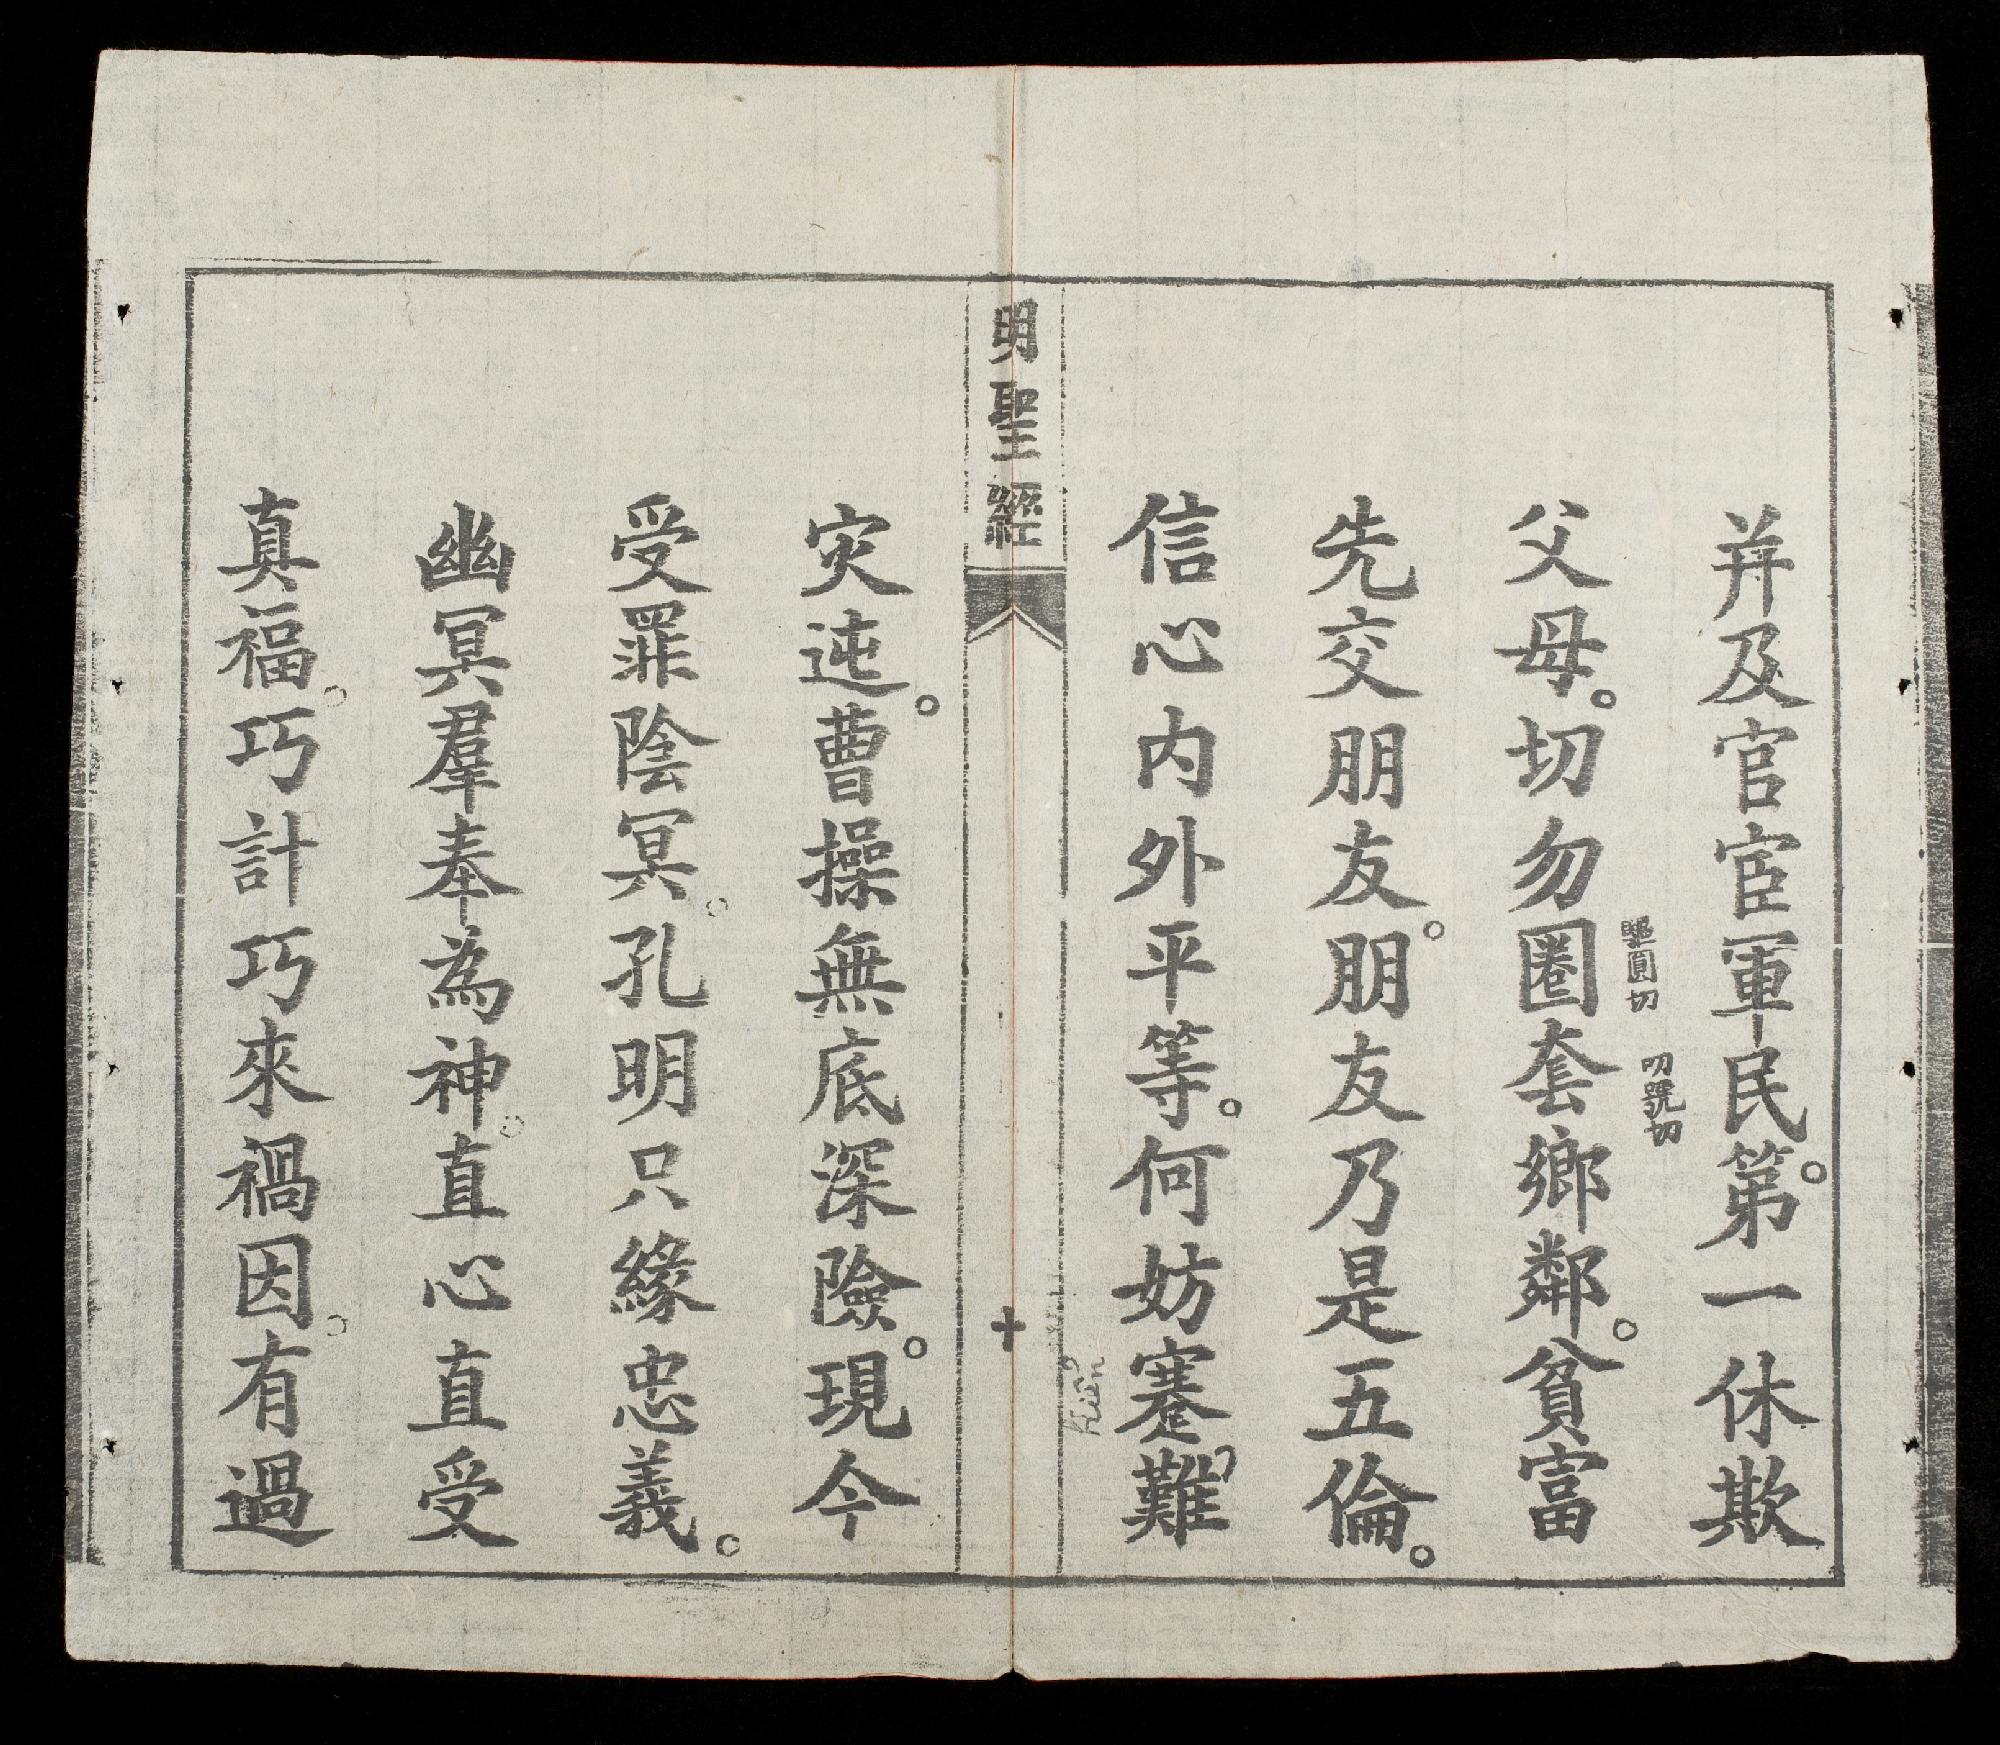 并及官宦軍民。第一休欺
父母。切勿圈套鄉鄰。貧富
圓切
切
先交朋友。朋友乃是五倫。
信心内外平等。何妨蹇難
Kiển
明聖經
十
灾迍。曹操無底深險。現今
受罪陰冥。孔明只緣忠義。
幽冥羣奉為神。直心直受
真福。巧計巧來禍因。有過